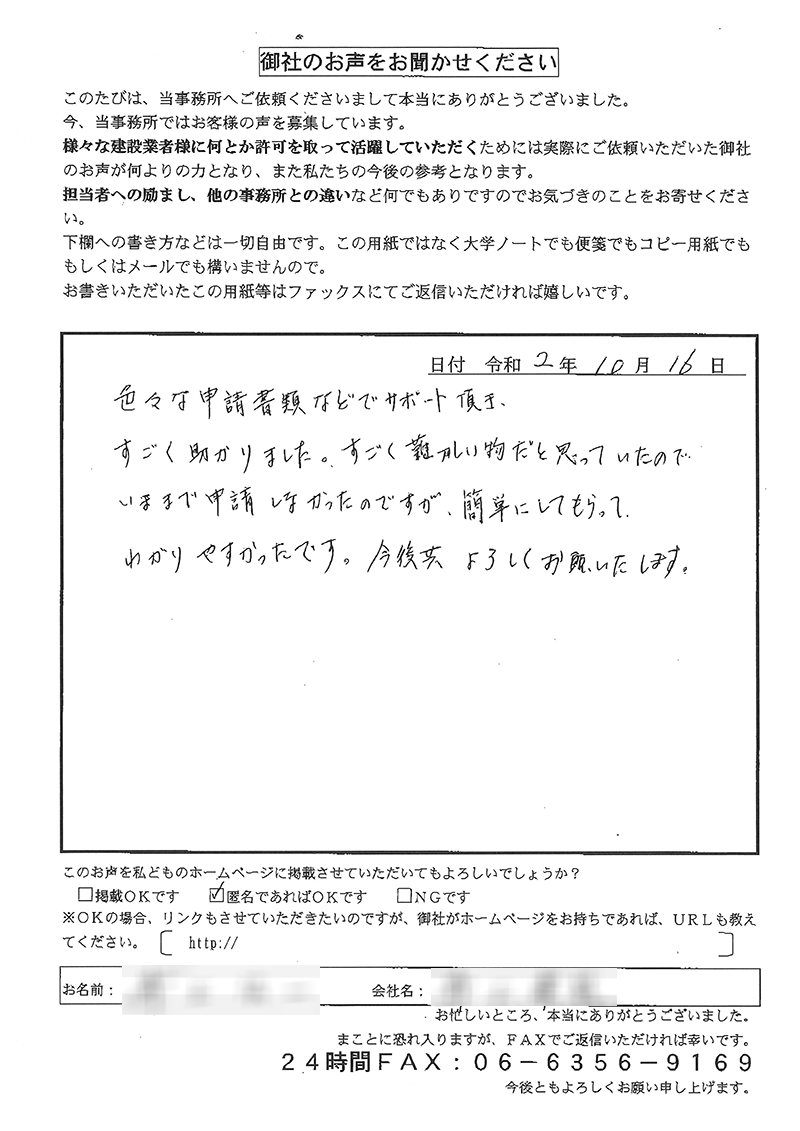 御社のお声をお聞かせください
このたびは、当事務所へご依頼くださいまして本当にありがとうございました。
今、当事務所ではお客様の声を募集しています。
様々な建設業者様に何とか許可を取って活躍していただくためには実際にご依頼いただいた御社
のお声が何よりの力となり、また私たちの今後の参考となります。
担当者への励まし、他の事務所との違いなど何でもありですのでお気づきのことをお寄せくださ
い。
下欄への書き方などは一切自由です。この用紙ではなく大学ノートでも便箋でもコピー用紙でも
もしくはメールでも構いませんので。
お書きいただいたこの用紙等はファックスにてご返信いただければ嬉しいです。
日付 令和 2 年 10 月 16 日
色々な申請書類などでサポート頂き、
すごく助かりました。すごく難かしい物だと思っていたので
いままで申請しなかったのですが、簡単にしてもらって
わかりやすかったです。今後共 よろしくお願いたします。
このお声を私どものホームページに掲載させていただいてもよろしいでしょうか？
□掲載ＯＫです ☑匿名であればＯＫです □ＮＧです
※ＯＫの場合、リンクもさせていただきたいのですが、御社がホームページをお持ちであれば、ＵＲＬも教え
てください。 [ http:// ]
お名前： 会社名：
お忙しいところ、本当にありがとうございました。
まことに恐れ入りますが、ＦＡＸでご返信いただければ幸いです。
２４時間ＦＡＸ：０６－６３５６－９１６９
今後ともよろしくお願い申し上げます。